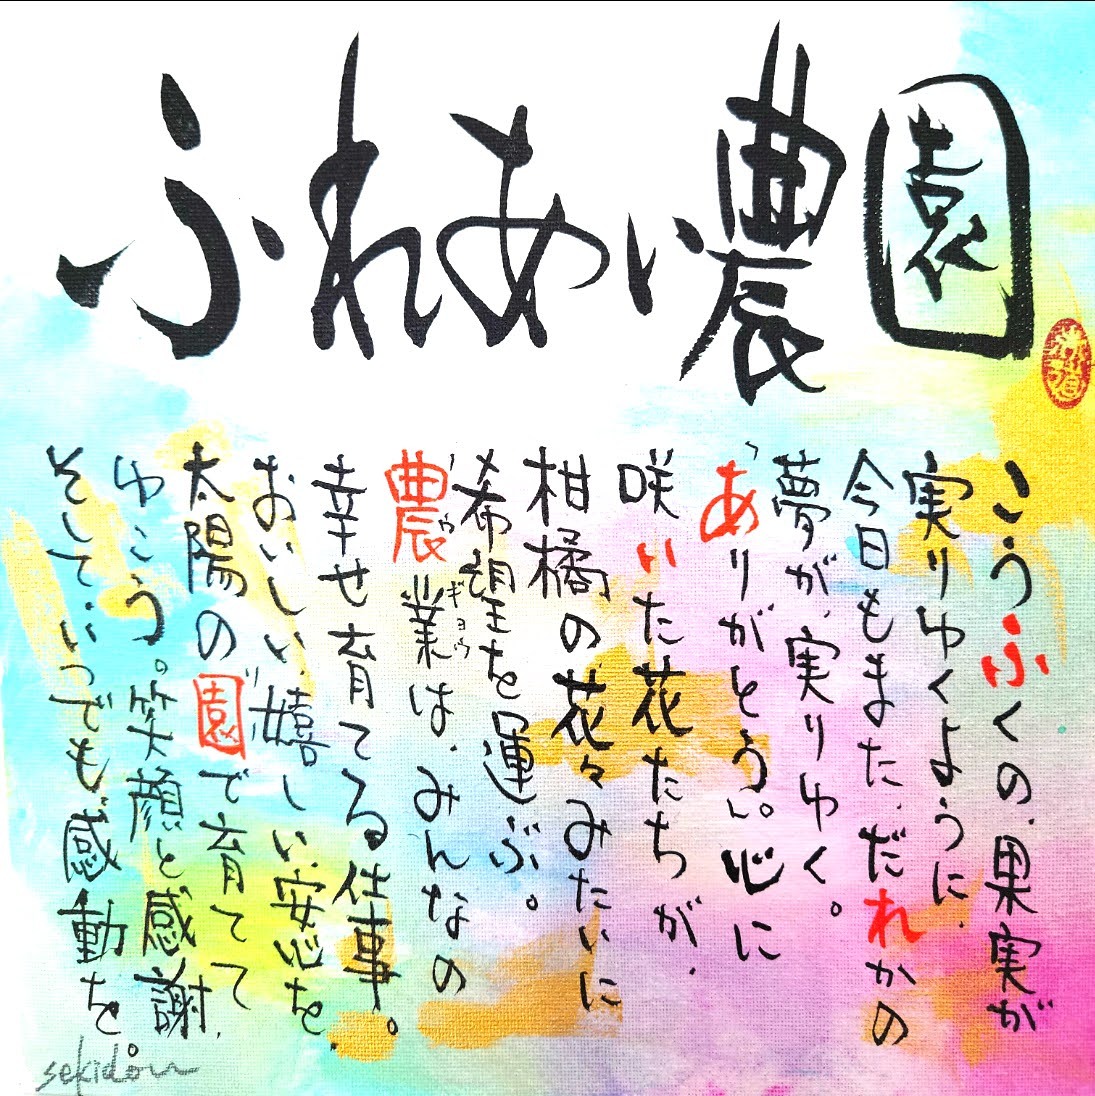 ふれあい農園
こうふくの、果実が
実りゆくように、
今日もまた、だれかの
夢が、実りゆく。
「ありがとう」。心に
咲いた花たちが、
柑橘の花々みたいに
希望を運ぶ。
「農業ギョウは、みんなの
幸せ育てる仕事。
おいしい、嬉しい、安心を、
太陽の園で育てて、
ゆこう。笑顔と感謝
そして、いつでも感動を。
sekidou